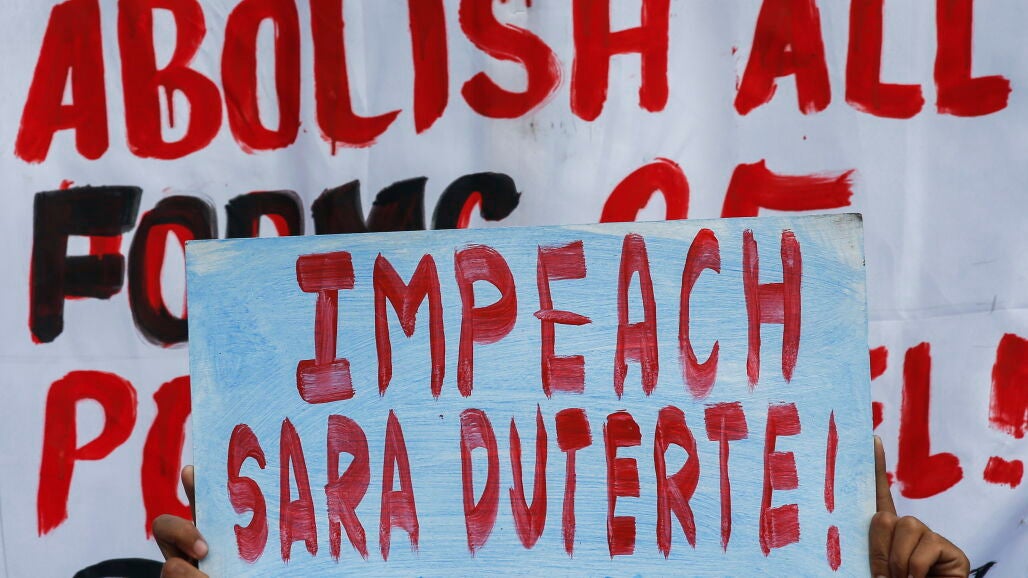 ABOLISH ALL
FORMS OF
IMPEACH
SARA DUTERTE!